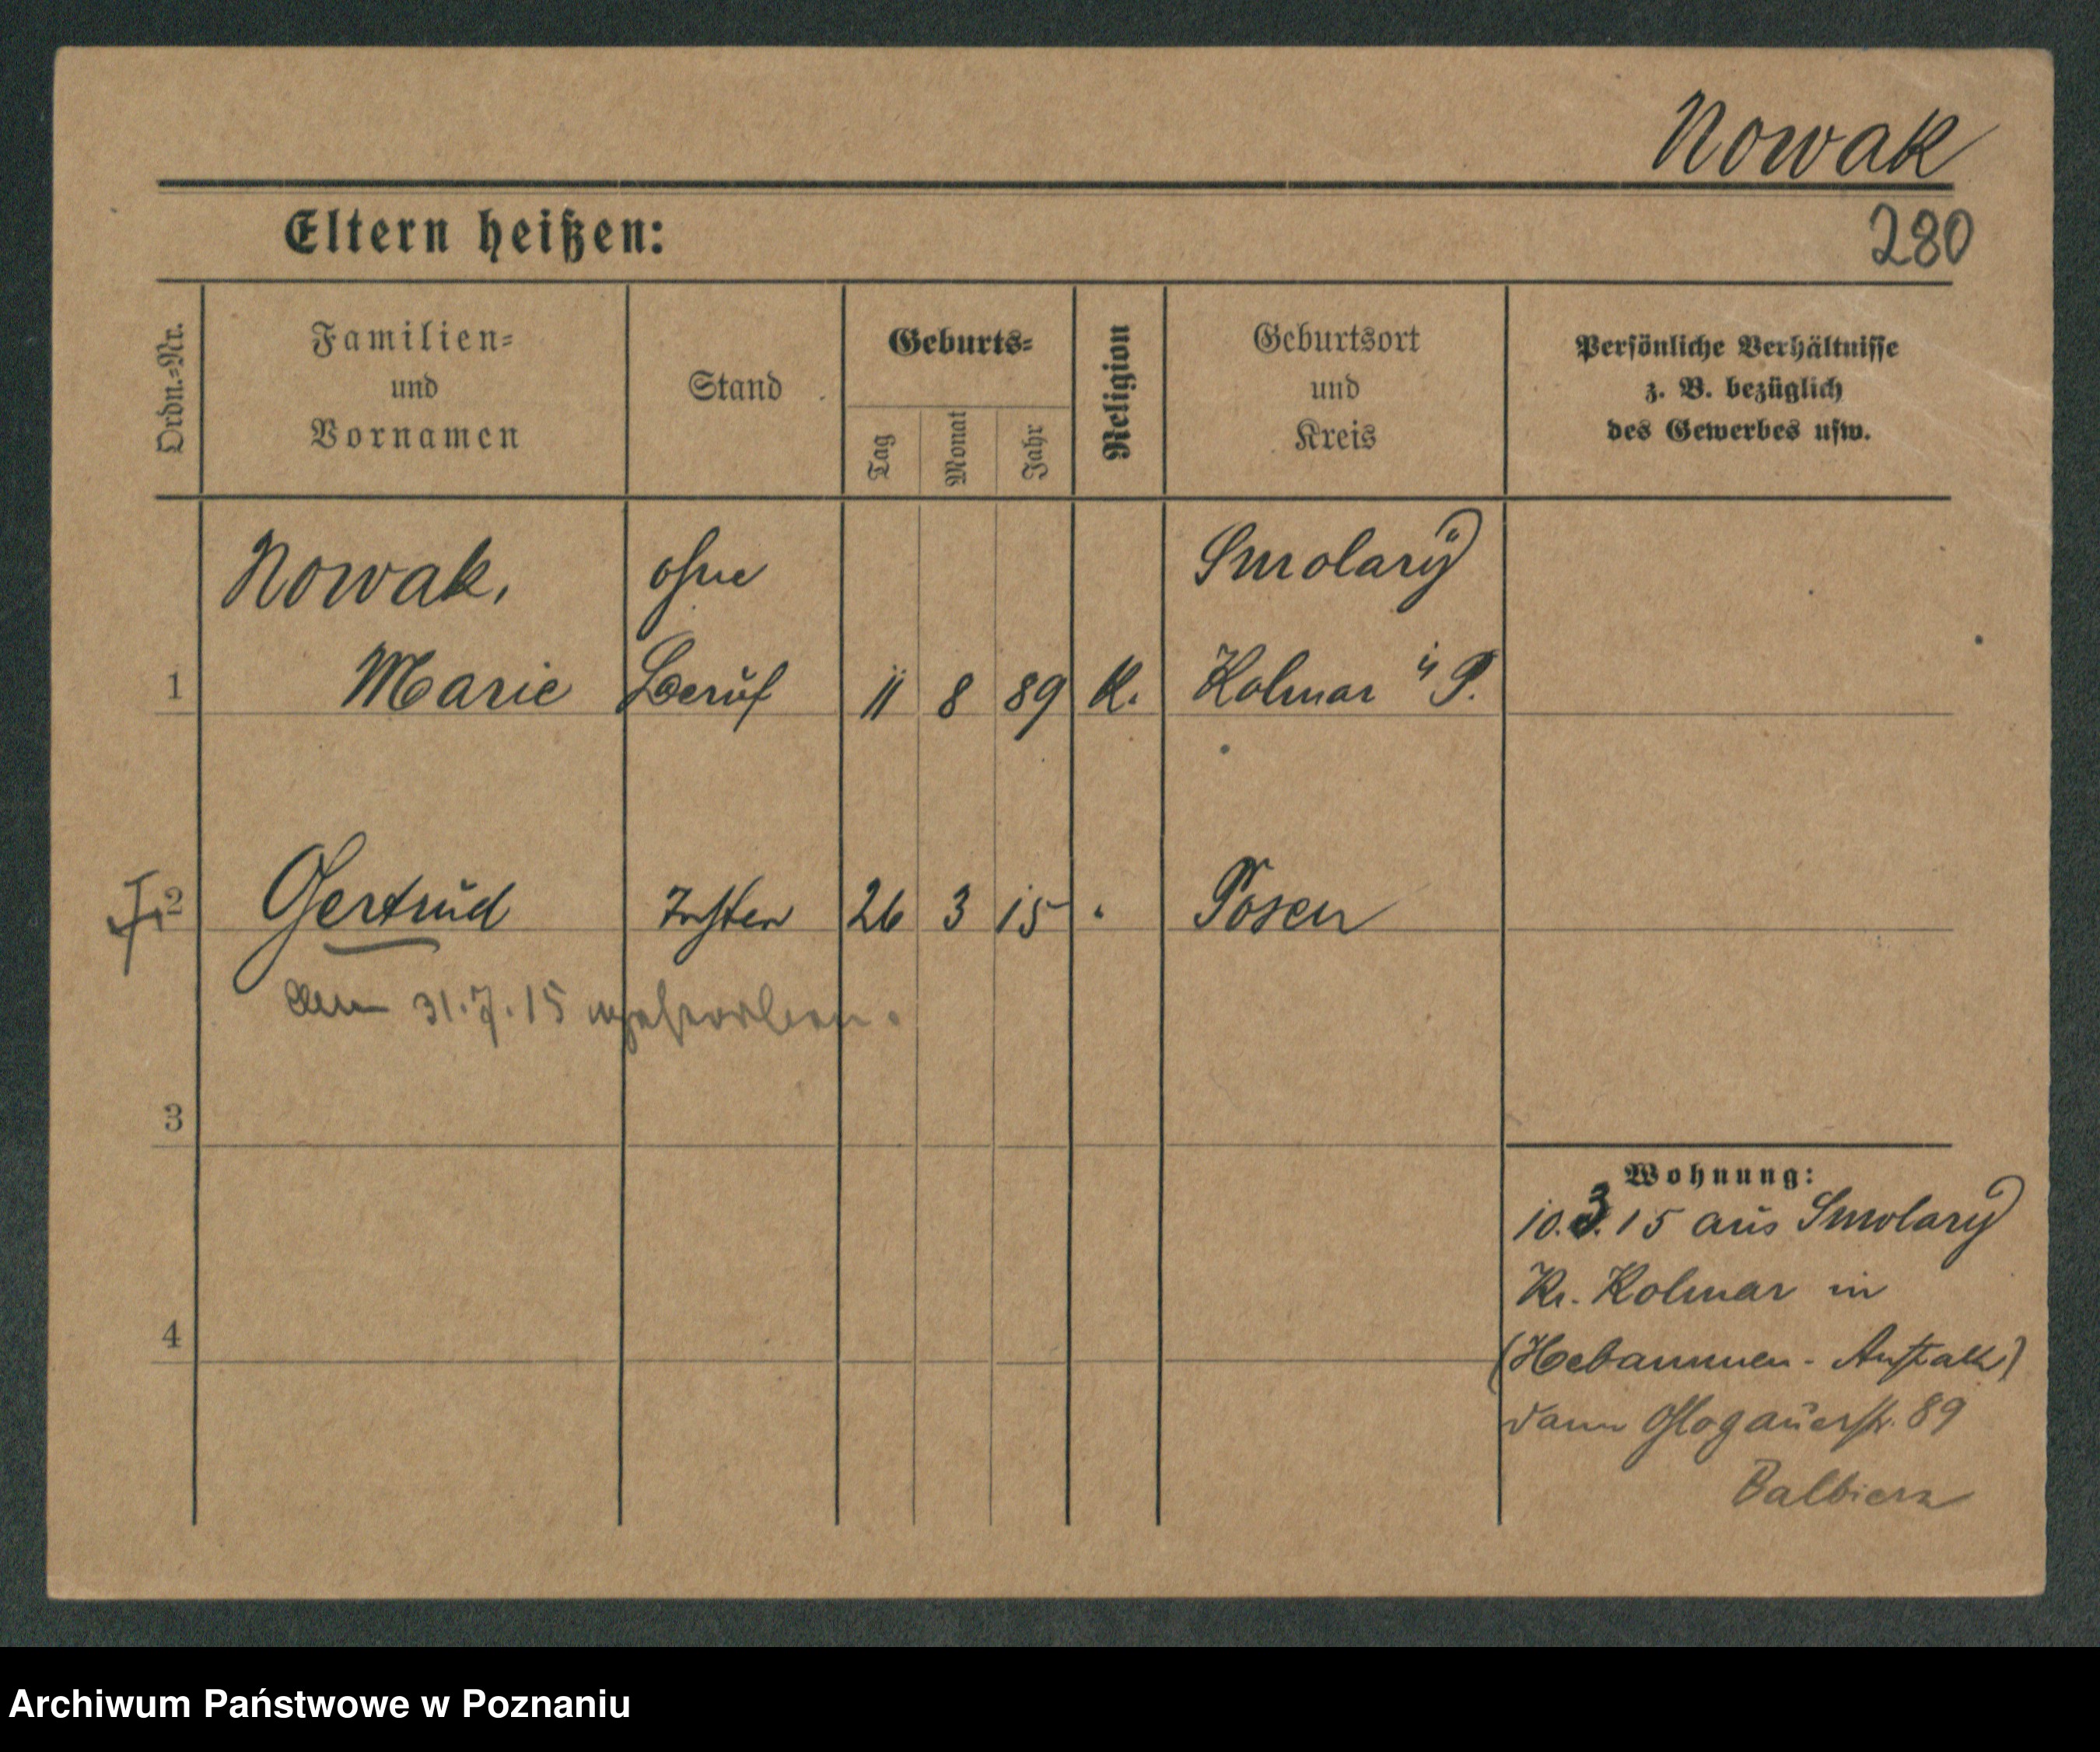 Nowak
Eltern heißen:
280
Ordn.=Nr.
Familien=
und
Vornamen
Stand
Geburts=
Tag
Monat
Jahr
Religion
Geburtsort
und
Kreis
Persönliche Verhältnisse
z. B. bezüglich
des Gewerbes usw.
Nowak, ohne Smolary
1 Marie Beruf 11 8 89 K. Kolmar i/ P.
2 Gertrud Tochter 26 3 15 " Posen
am 31.7.15 gestorben.
3
Wohnung:
10.3.15 aus Smolary
Kr. Kolmar in
4
(Hebammen-Anstalt)
dann Glogauerstr. 89
Balbierz
Archiwum Państwowe w Poznaniu